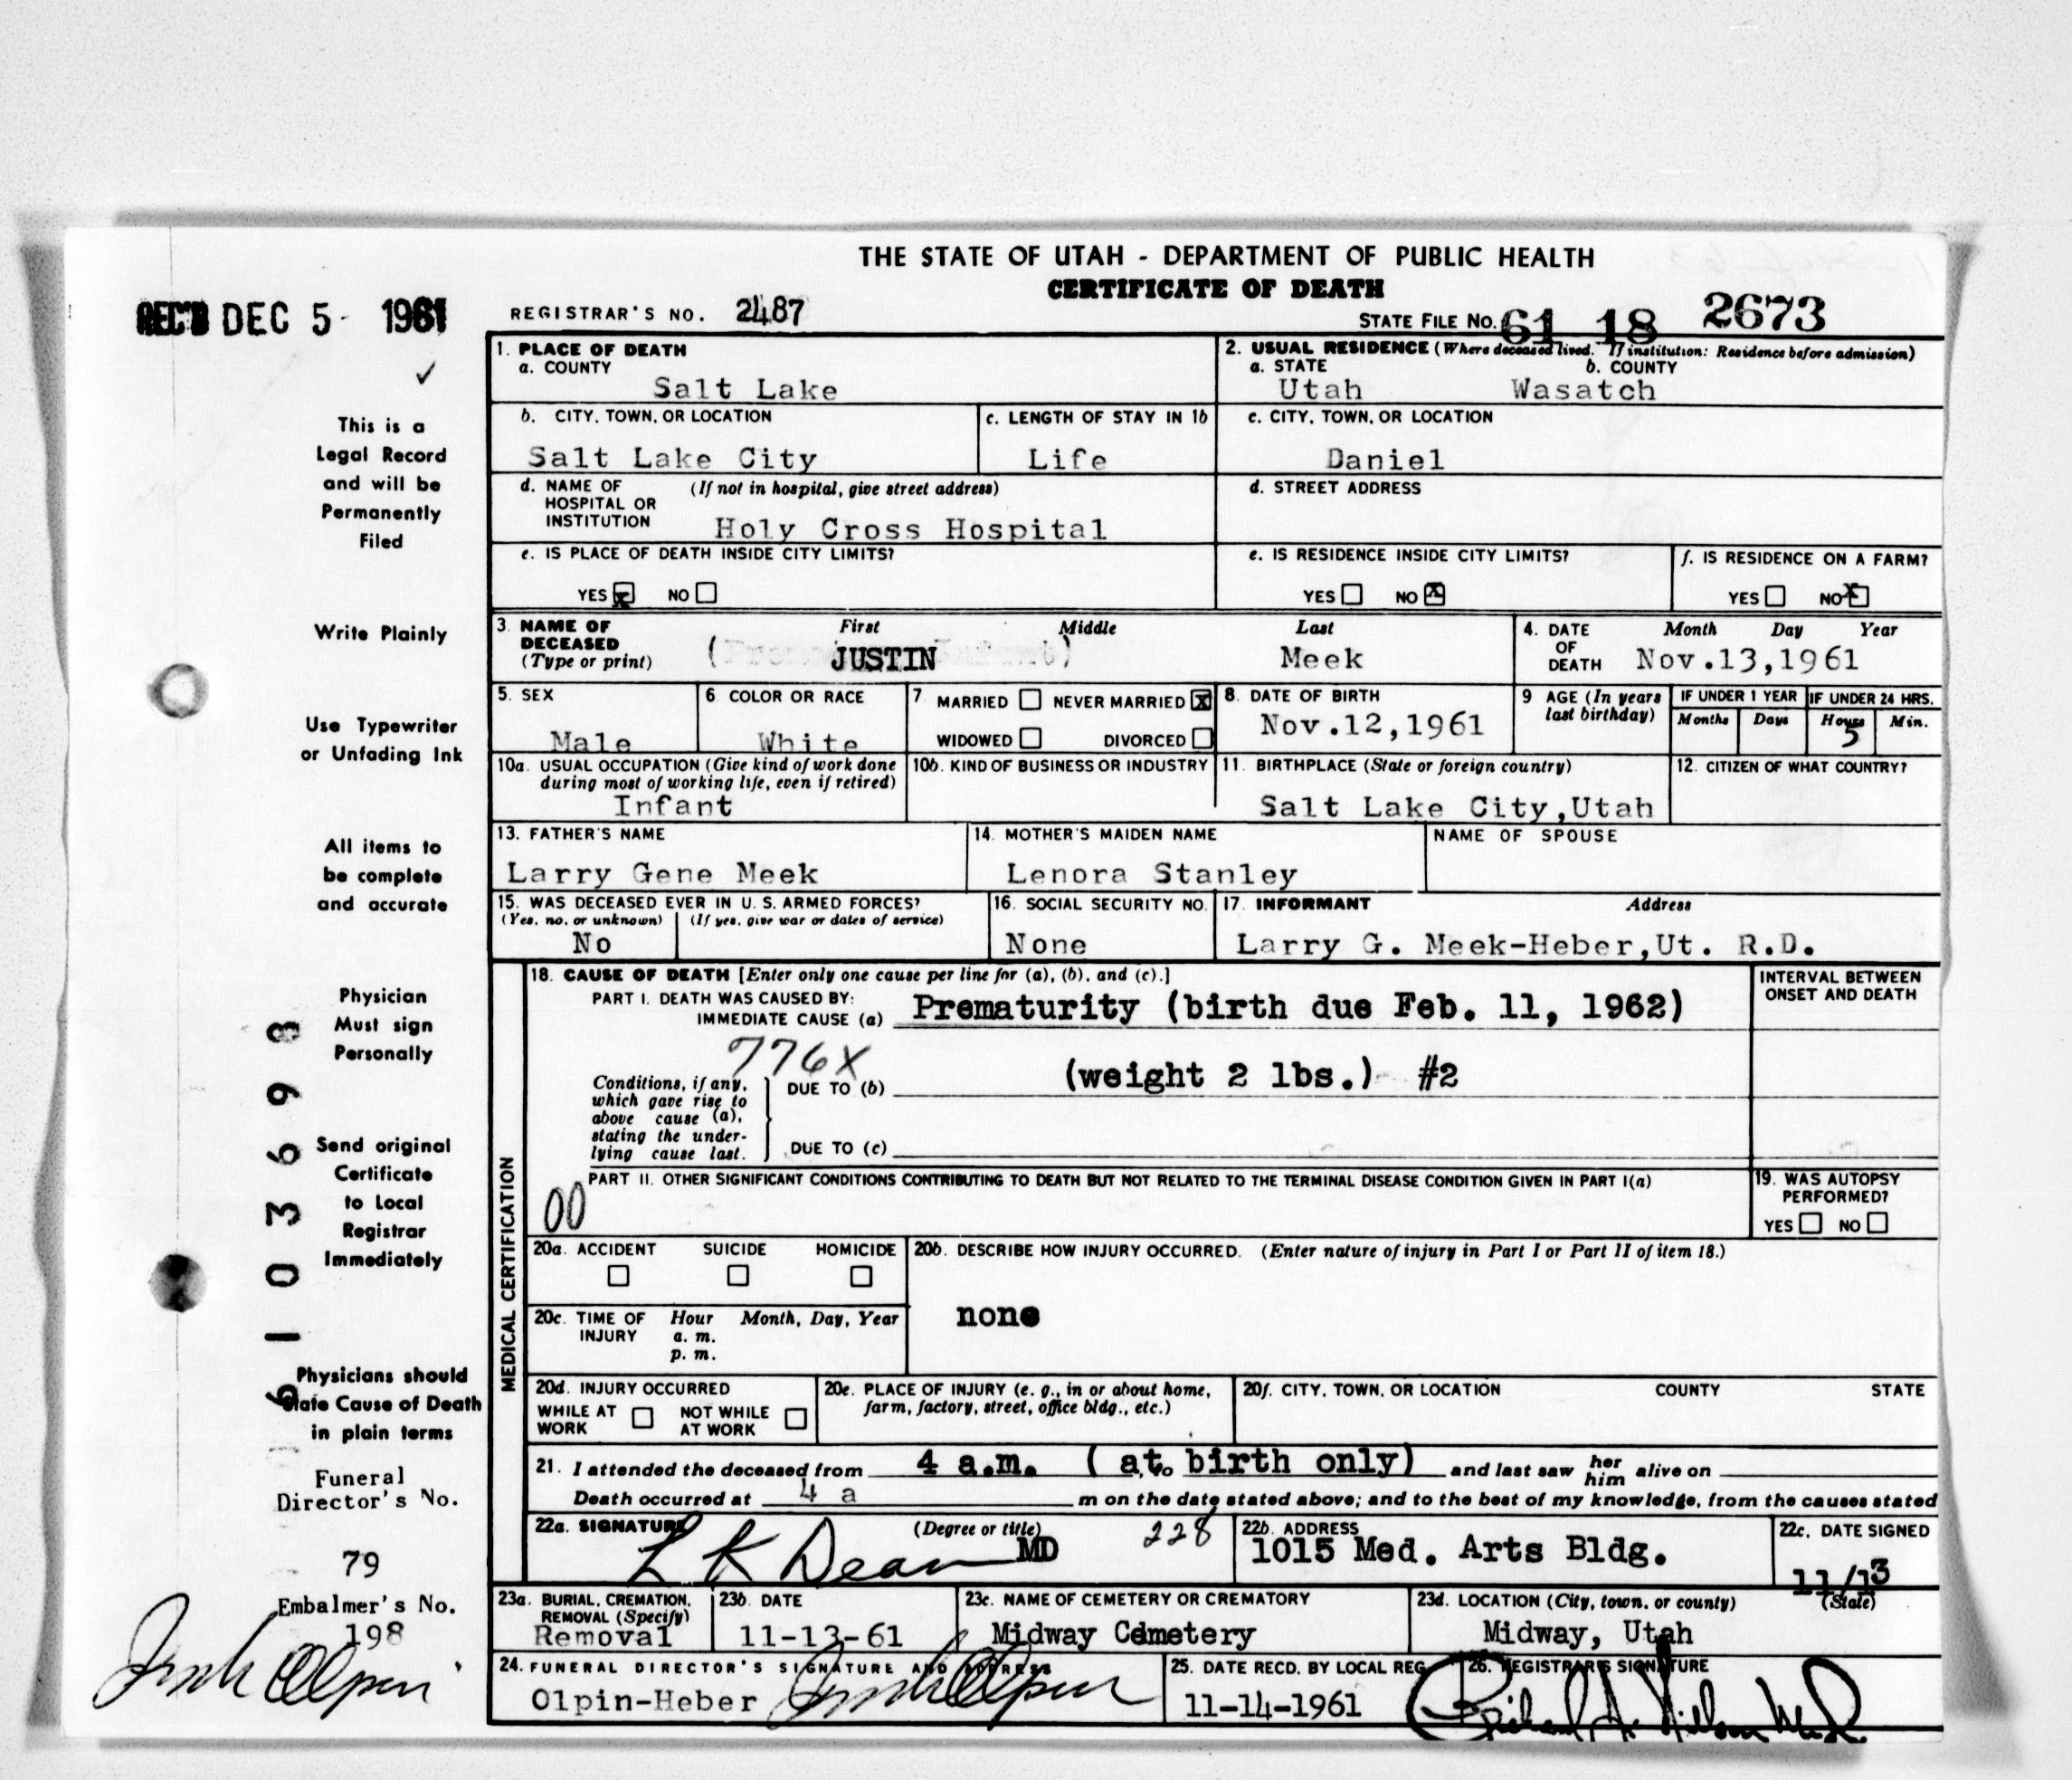 THE STATE OF UTAH - DEPARTMENT OF PUBLIC HEALTH
CERTIFICATE OF DEATH
REC'D DEC 5 1961
REGISTRAR'S NO. 2487
STATE FILE No. 61 18 2673
1. PLACE OF DEATH
a. COUNTY
Salt Lake
2. USUAL RESIDENCE (Where deceased lived. If institution: Residence before admission)
a. STATE b. COUNTY
Utah Wasatch
b. CITY, TOWN, OR LOCATION
Salt Lake City
c. LENGTH OF STAY IN 1b
Life
c. CITY, TOWN, OR LOCATION
Daniel
d. NAME OF HOSPITAL OR INSTITUTION (If not in hospital, give street address)
Holy Cross Hospital
d. STREET ADDRESS
e. IS PLACE OF DEATH INSIDE CITY LIMITS?
YES x NO
e. IS RESIDENCE INSIDE CITY LIMITS?
YES NO X
f. IS RESIDENCE ON A FARM?
YES NO X
3. NAME OF DECEASED (Type or print)
First Middle Last
JUSTIN Meek
4. DATE OF DEATH Month Day Year
Nov.13,1961
5. SEX
Male
6. COLOR OR RACE
White
7. MARRIED NEVER MARRIED X
WIDOWED DIVORCED
8. DATE OF BIRTH
Nov.12,1961
9 AGE (In years last birthday)
IF UNDER 1 YEAR IF UNDER 24 HRS.
Months Days Hours Min.
5
10a. USUAL OCCUPATION (Give kind of work done during most of working life, even if retired)
Infant
10b. KIND OF BUSINESS OR INDUSTRY
11. BIRTHPLACE (State or foreign country)
Salt Lake City,Utah
12. CITIZEN OF WHAT COUNTRY?
13. FATHER'S NAME
Larry Gene Meek
14. MOTHER'S MAIDEN NAME
Lenora Stanley
NAME OF SPOUSE
15. WAS DECEASED EVER IN U. S. ARMED FORCES?
(Yes, no, or unknown) (If yes, give war or dates of service)
No
16. SOCIAL SECURITY NO.
None
17. INFORMANT Address
Larry G. Meek-Heber,Ut. R.D.
MEDICAL CERTIFICATION
18. CAUSE OF DEATH [Enter only one cause per line for (a), (b), and (c).]
INTERVAL BETWEEN ONSET AND DEATH
PART I. DEATH WAS CAUSED BY:
IMMEDIATE CAUSE (a) Prematurity (birth due Feb. 11, 1962)
776X
Conditions, if any, which gave rise to above cause (a), stating the underlying cause last.
DUE TO (b) (weight 2 lbs.) #2
DUE TO (c)
PART II. OTHER SIGNIFICANT CONDITIONS CONTRIBUTING TO DEATH BUT NOT RELATED TO THE TERMINAL DISEASE CONDITION GIVEN IN PART I(a)
00
19. WAS AUTOPSY PERFORMED?
YES NO
20a. ACCIDENT SUICIDE HOMICIDE
20b. DESCRIBE HOW INJURY OCCURRED. (Enter nature of injury in Part I or Part II of item 18.)
none
20c. TIME OF INJURY Hour Month, Day, Year
a. m.
p. m.
20d. INJURY OCCURRED
WHILE AT WORK NOT WHILE AT WORK
20e. PLACE OF INJURY (e. g., in or about home, farm, factory, street, office bldg., etc.)
20f. CITY, TOWN, OR LOCATION COUNTY STATE
21. I attended the deceased from 4 a.m. ( at birth only) and last saw her him alive on
Death occurred at 4 a m on the date stated above; and to the best of my knowledge, from the causes stated
22a. SIGNATURE (Degree or title)
L K Dean MD 228
22b. ADDRESS
1015 Med. Arts Bldg.
22c. DATE SIGNED
11/13
23a. BURIAL, CREMATION, REMOVAL (Specify)
Removal
23b. DATE
11-13-61
23c. NAME OF CEMETERY OR CREMATORY
Midway Cemetery
23d. LOCATION (City, town, or county) (State)
Midway, Utah
24. FUNERAL DIRECTOR'S SIGNATURE AND ADDRESS
Olpin-Heber
25. DATE RECD. BY LOCAL REG.
11-14-1961
26. REGISTRAR'S SIGNATURE
This is a
Legal Record
and will be
Permanently
Filed
Write Plainly
Use Typewriter
or Unfading Ink
All items to
be complete
and accurate
Physician
Must sign
Personally
Send original
Certificate
to Local
Registrar
Immediately
Physicians should
state Cause of Death
in plain terms
Funeral
Director's No.
79
Embalmer's No.
198
6 1 0 3 6 9 3